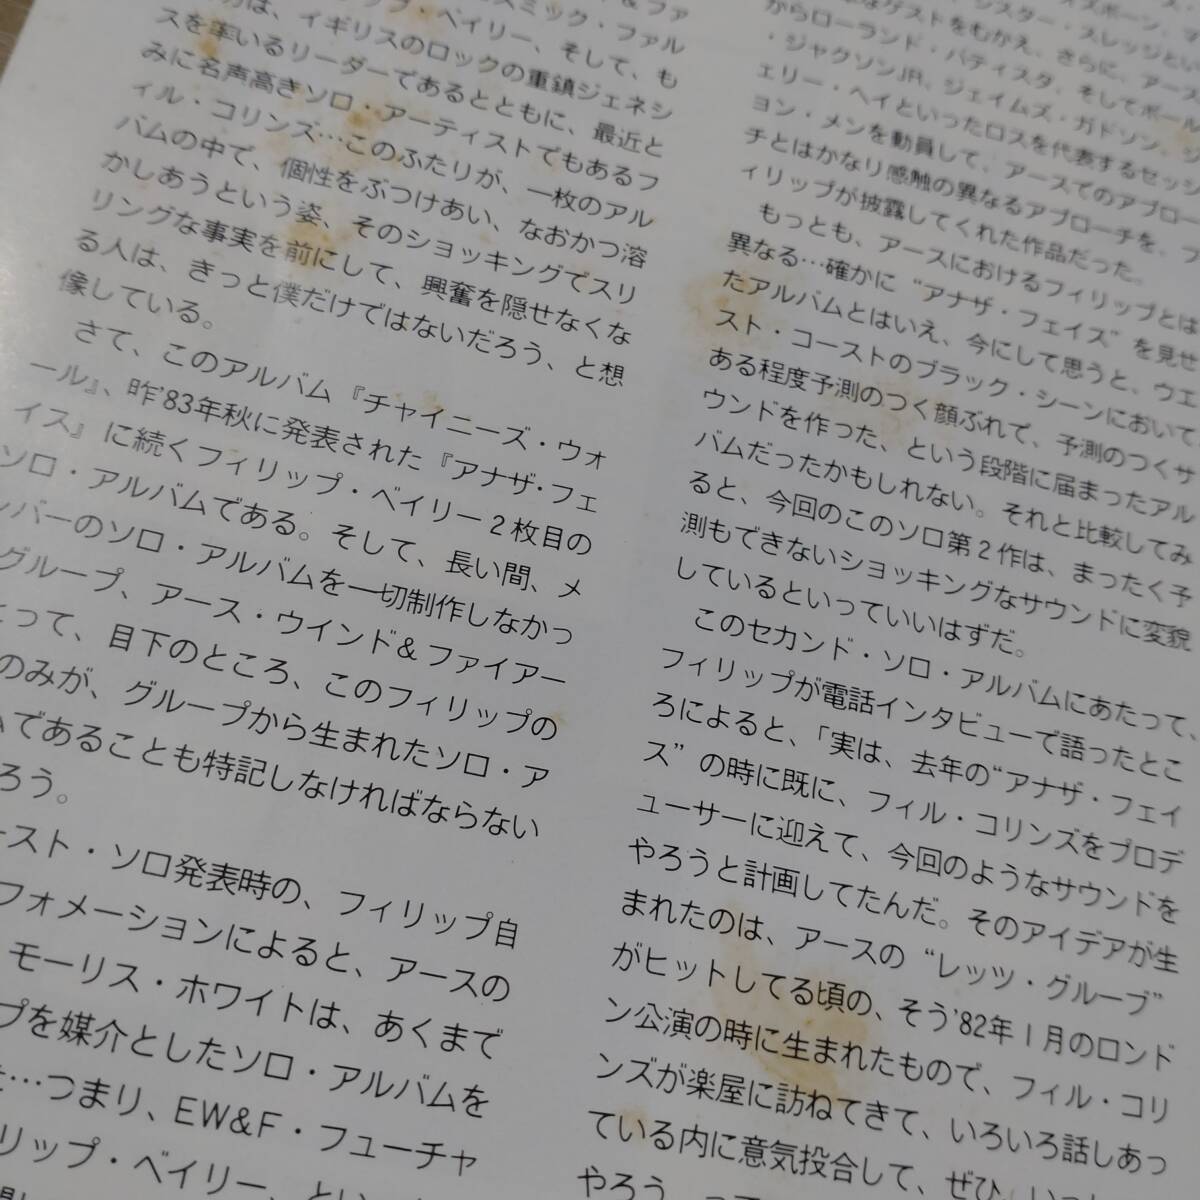 スミック・ファル
ップ・ベイリー、そして、も
は、イギリスのロックの重鎮ジェネシ
スを率いるリーダーであるとともに、最近と
みに名声高きソロ・アーティストでもあるフ
ィル・コリンズ…このふたりが、一枚のアル
バムの中で、個性をぶつけあい、なおかつ溶
かしあうという姿、そのショッキングでスリ
リングな事実を前にして、興奮を隠せなくな
る人は、きっと僕だけではないだろう、と想
像している。
さて、このアルバム『チャイニーズ・ウォ
ール』、昨'83年秋に発表された『アナザ・フェ
イス』に続くフィリップ・ベイリー2枚目の
ソロ・アルバムである。そして、長い間、メ
ンバーのソロ・アルバムを一切制作しなかっ
グループ、アース・ウインド&ファイアー
とって、目下のところ、このフィリップの
のみが、グループから生まれたソロ・ア
ムであることも特記しなければならない
ろう。
ースト・ソロ発表時の、フィリップ自
フォメーションによると、アースの
モーリス・ホワイトは、あくまで
プを媒介としたソロ・アルバムを
…つまり、EW&F・フューチャ
リップ・ベイリー、とい
なゲストをむかえ、さらに、アース
からローランド・バティスタ、そしてポール
・ジャクソンJR、ジェイムズ・ガドソン、ジ
ェリー・ヘイといったロスを代表するセッシ
ョン・メンを動員して、アースでのアプロー
チとはかなり感触の異なるアプローチを、フ
ィリップが披露してくれた作品だった。
もっとも、アースにおけるフィリップとは
異なる…確かに“アナザ・フェイズ”を見せ
たアルバムとはいえ、今にして思うと、ウエ
スト・コーストのブラック・シーンにおいて
ある程度予測のつく顔ぶれで、予測のつくサ
ウンドを作った、という段階に届まったアル
バムだったかもしれない。それと比較してみ
ると、今回のこのソロ第2作は、まったく予
測もできないショッキングなサウンドに変貌
しているといっていいはずだ。
このセカンド・ソロ・アルバムにあたって、
フィリップが電話インタビューで語ったとこ
ろによると、「実は、去年の“アナザ・フェイ
ズ”の時に既に、フィル・コリンズをプロデ
ューサーに迎えて、今回のようなサウンドを
やろうと計画してたんだ。そのアイデアが生
まれたのは、アースの“レッツ・グルーブ”
がヒットしてる頃の、そう'82年1月のロンド
ン公演の時に生まれたもので、フィル・コリ
ンズが楽屋に訪ねてきて、いろいろ話しあっ
ている内に意気投合して、ぜひ
やろう